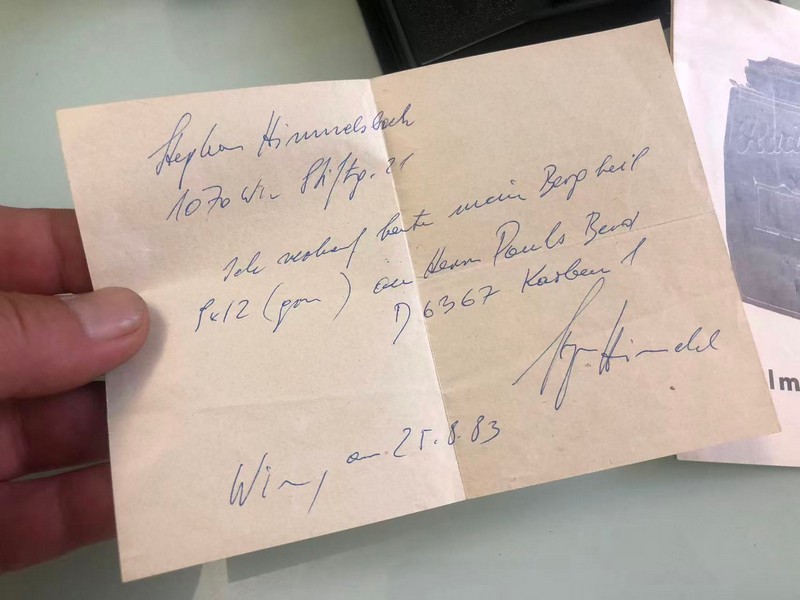 Stephan Himmelsbach
1070 Wien Stiftg. 21
Ich verkauf heute mein Bergheil
9x12 (grün) an Herrn Pauls Bernd
D 6367 Karben 1
Wien, am 25.8.83
lm